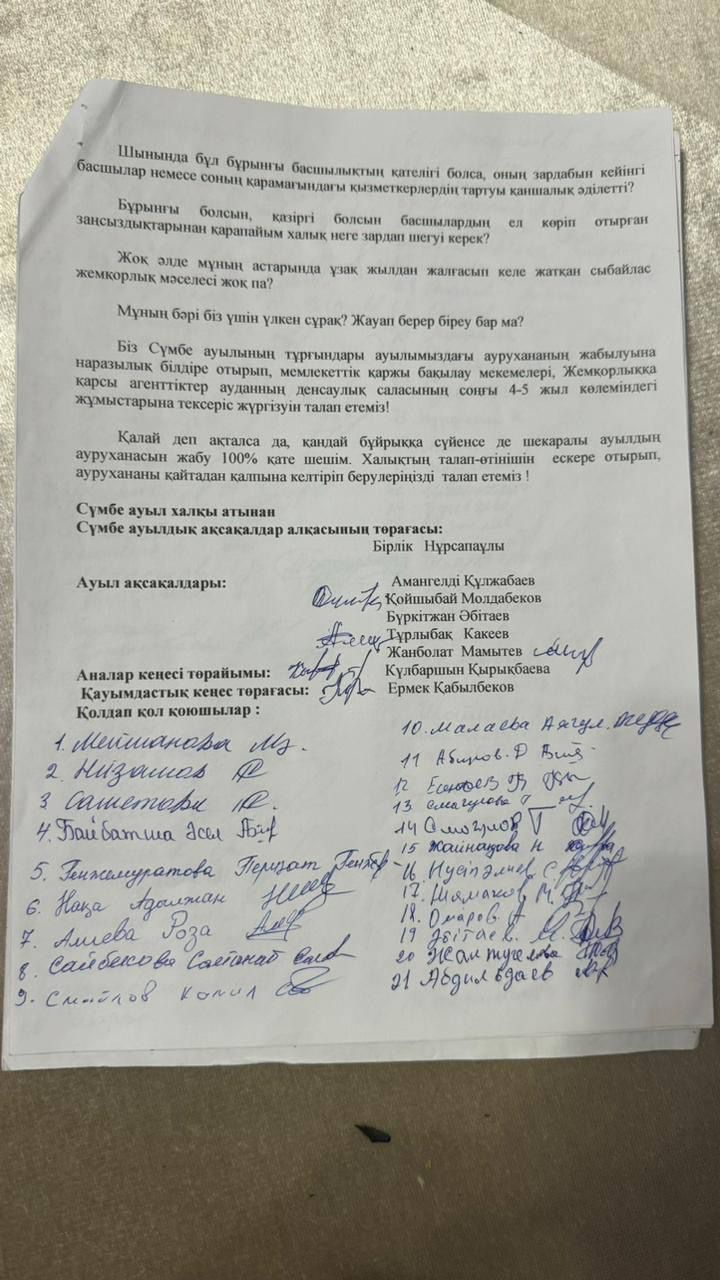 Шынында бұл бұрынғы басшылықтың қателігі болса, оның зардабын кейінгі
басшылар немесе соның қарамағындағы қызметкерлердің тартуы қаншалық әділетті?
Бұрынғы болсын, қазіргі болсын басшылардың ел көріп отырған
заңсыздықтарынан қарапайым халық неге зардап шегуі керек?
Жоқ әлде мұның астарында ұзақ жылдан жалғасып келе жатқан сыбайлас
жемқорлық мәселесі жоқ па?
Мұның бәрі біз үшін үлкен сұрақ? Жауап берер біреу бар ма?
Біз Сүмбе ауылының тұрғындары ауылымыздағы аурухананың жабылуына
наразылық білдіре отырып, мемлекеттік қаржы бақылау мекемелері, Жемқорлыққа
қарсы агенттіктер ауданның денсаулық саласының соңғы 4-5 жыл көлеміндегі
жұмыстарына тексеріс жүргізуін талап етеміз!
Қалай деп ақталса да, қандай бұйрыққа сүйенсе де шекаралы ауылдың
ауруханасын жабу 100% қате шешім. Халықтың талап-өтінішін ескере отырып,
аурухананы қайтадан қалпына келтіріп берулеріңізді талап етеміз !
Сүмбе ауыл халқы атынан
Сүмбе ауылдық ақсақалдар алқасының төрағасы:
Бірлік Нұрсапаұлы
Ауыл ақсақалдары: Амангелді Құлжабаев
Қойшыбай Молдабеков
Бүркітжан Әбітаев
Тұрлыбақ Какеев
Жанболат Мамытев
Аналар кеңесі төрайымы: Күлбаршын Қырықбаева
Қауымдастық кеңес төрағасы: Ермек Қабылбеков
Қолдап қол қоюшылар :
1. Мейманова
2. Низамов
3
4. Байбатша Әсел
5. Генжемуратова Перизат
6. Наха Адилжан
7. Алиева Роза
8. Сайбекова Салтанат
9. Смайлов Камил
10. Малаева Айгул.
11 Абиров. Д
12
13 Смагулова Т
14 Смагулов Т
15 Жайнақова Н
16 Нүсіпәлиев. С
17. М.
18. Омаров.
19 Әбітаев. М.
20 Жантуелова
21 Абдильдаев